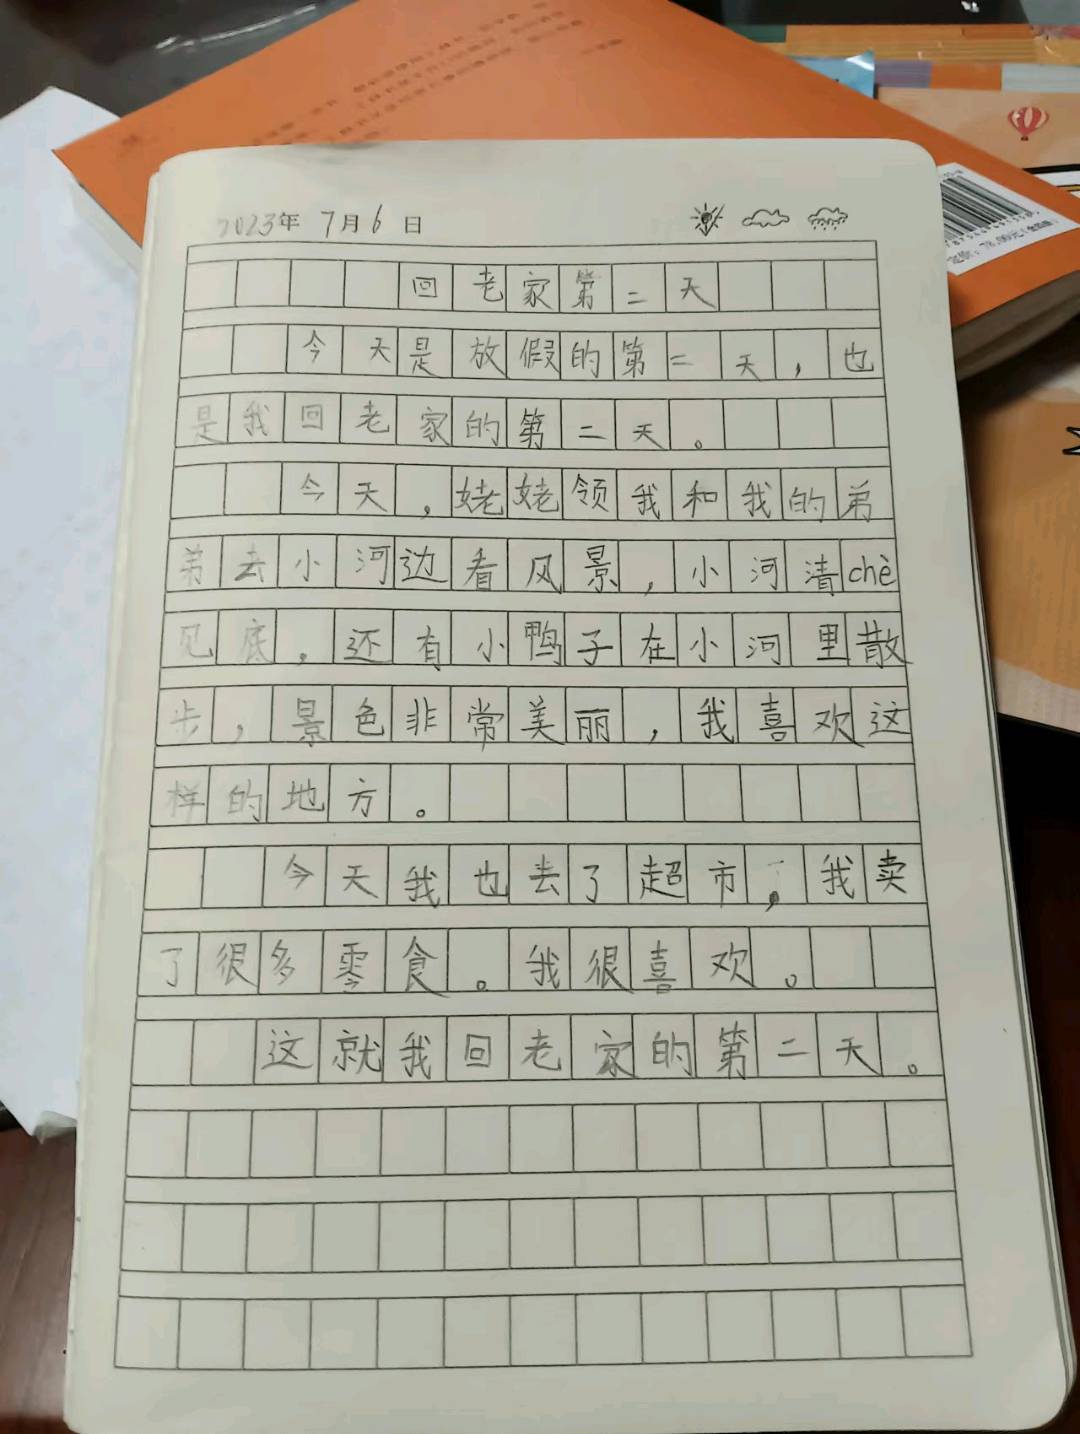 2023年 7月6日
回老家第二天
今天是放假的第二天，也
是我回老家的第二天。
今天，姥姥领我和我的弟
弟去小河边看风景，小河清chè
见底，还有小鸭子在小河里散
步，景色非常美丽，我喜欢这
样的地方。
今天我也去了超市，我卖
了很多零食。我很喜欢。
这就我回老家的第二天。